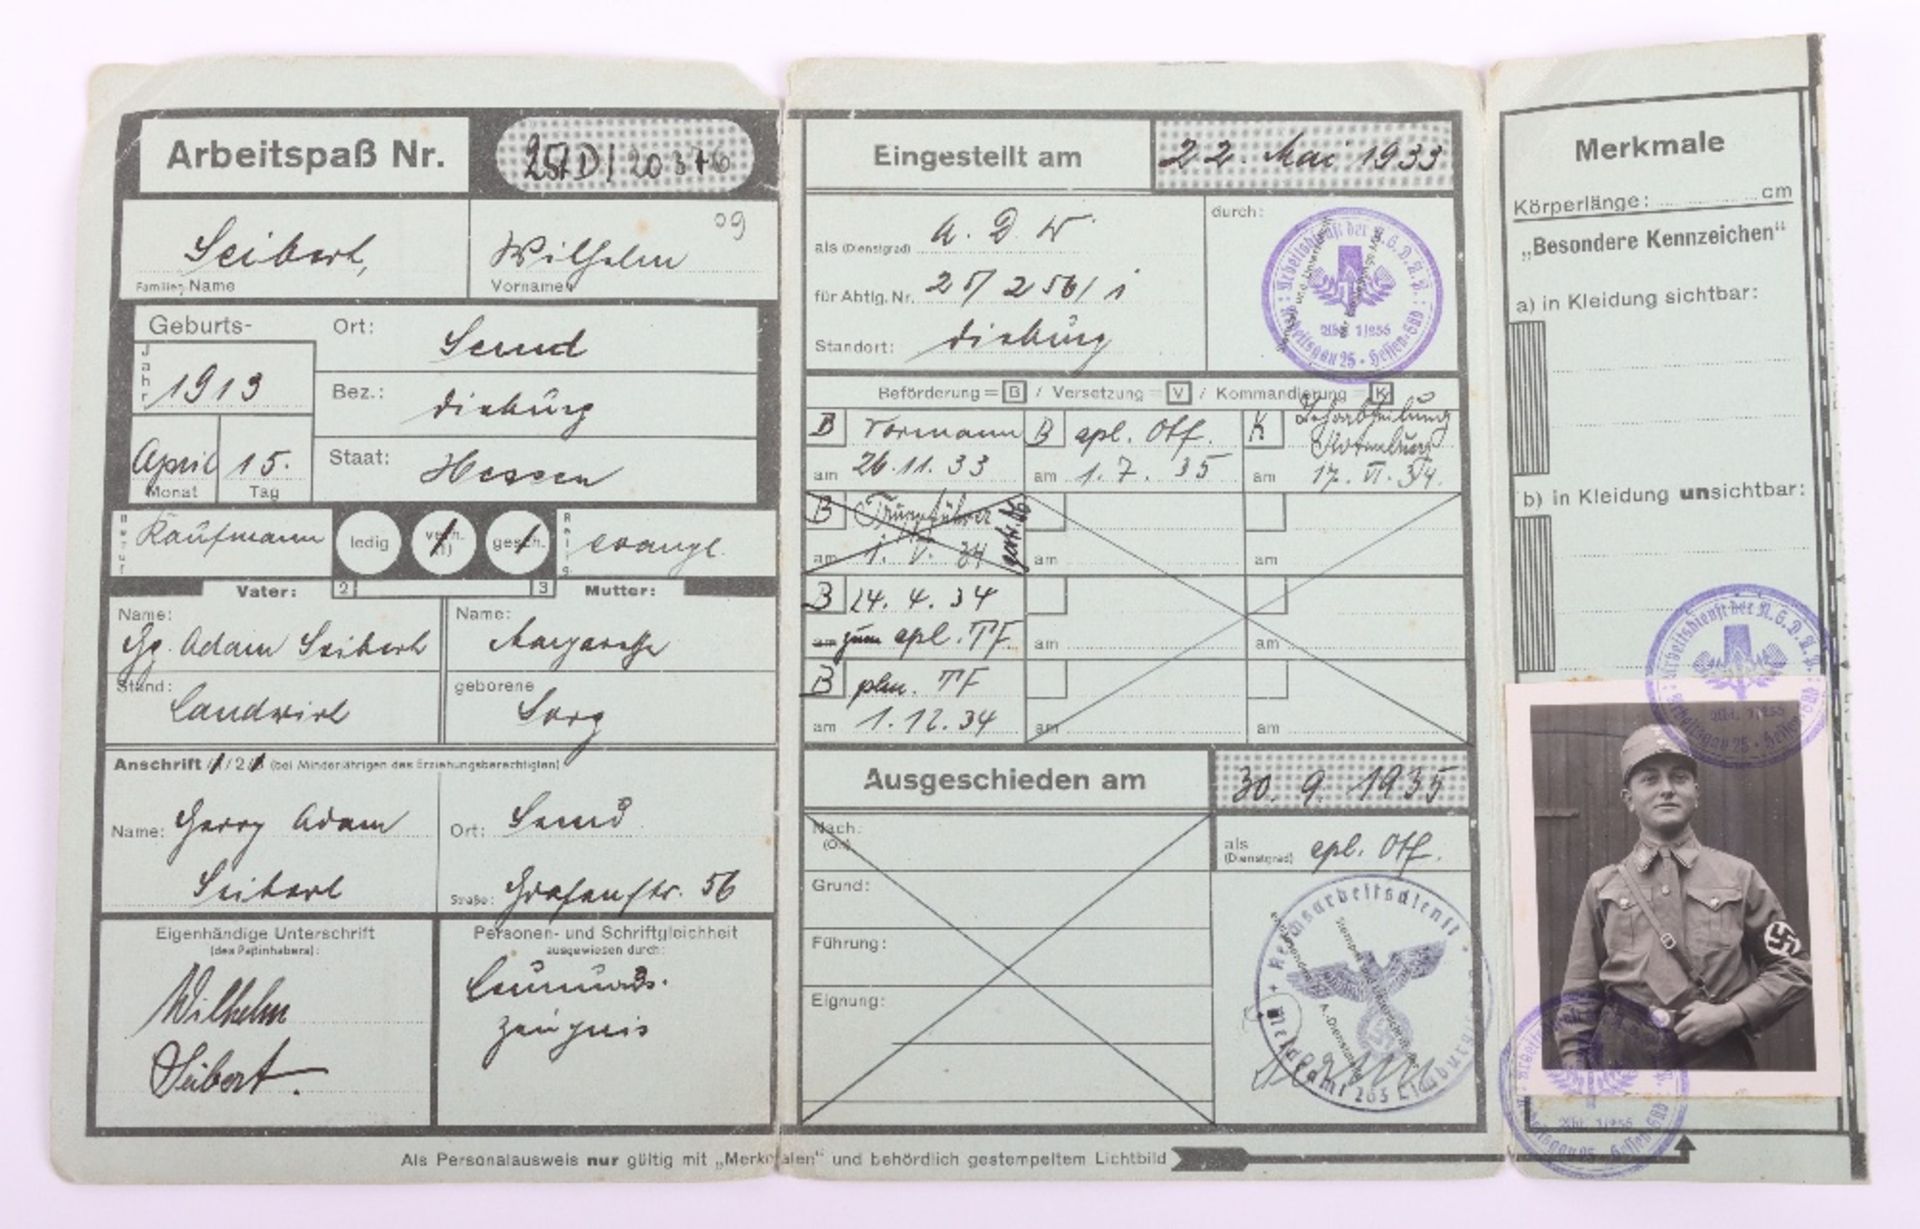 Arbeitspaß Nr.
09
Seibert, Wilhelm
Familien-Name Vornamen
Geburts-
Jahr
1913
April 15.
Monat Tag
Ort: Semd
Bez.: Dieburg
Staat: Hessen
Beruf
Kaufmann
ledig
verh.
(1)
gesch.
Relig.
evangl.
Vater: 2 3 Mutter:
Name:
Gg. Adam Seibert
Name:
Margarethe
Stand:
Landwirt
geborene
Sorg
Anschrift 1/2/3 (bei Minderjährigen des Erziehungsberechtigten)
Name: Georg Adam
Seibert
Ort: Semd
Straße: Grafenstr. 56
Eigenhändige Unterschrift
(des Paßinhabers):
Wilhelm
Seibert.
Personen- und Schriftgleichheit
ausgewiesen durch:
Leumunds-
zeugnis
Eingestellt am 22. Mai 1933
als (Dienstgrad) A. D. W.
für Abtlg. Nr. 25/256/1
Standort: Dieburg
durch:
Arbeitsdienst der N.S.D.A.P.
Abt. 1/256
Arbeitsgau 25 • Hessen-Süd
Beförderung = B / Versetzung = V / Kommandierung = K
B Vormann
am 26.11.33
B apl. Otf.
am 1.7.35
K Lehrabteilung
am 17. VI. 34.
B Truppführer
am 1. V. 34
am
am
B 24. 4. 34
am zum apl. TF.
am
am
B plm. TF
am 1.12.34
am
am
Ausgeschieden am 30. 9. 1935
Nach:
(Ort)
Grund:
Führung:
Eignung:
als
(Dienstgrad) apl. Otf.
Reichsarbeitsdienst
Meldeamt 263 Limburg
Merkmale
Körperlänge: cm
„Besondere Kennzeichen“
a) in Kleidung sichtbar:
b) in Kleidung unsichtbar:
Arbeitsdienst der N.S.D.A.P.
Abt. 1/256
Arbeitsgau 25 • Hessen-Süd
Abt. 1/256
Arbeitsgau 25 • Hessen-Süd
Als Personalausweis nur gültig mit „Merkmalen“ und behördlich gestempeltem Lichtbild